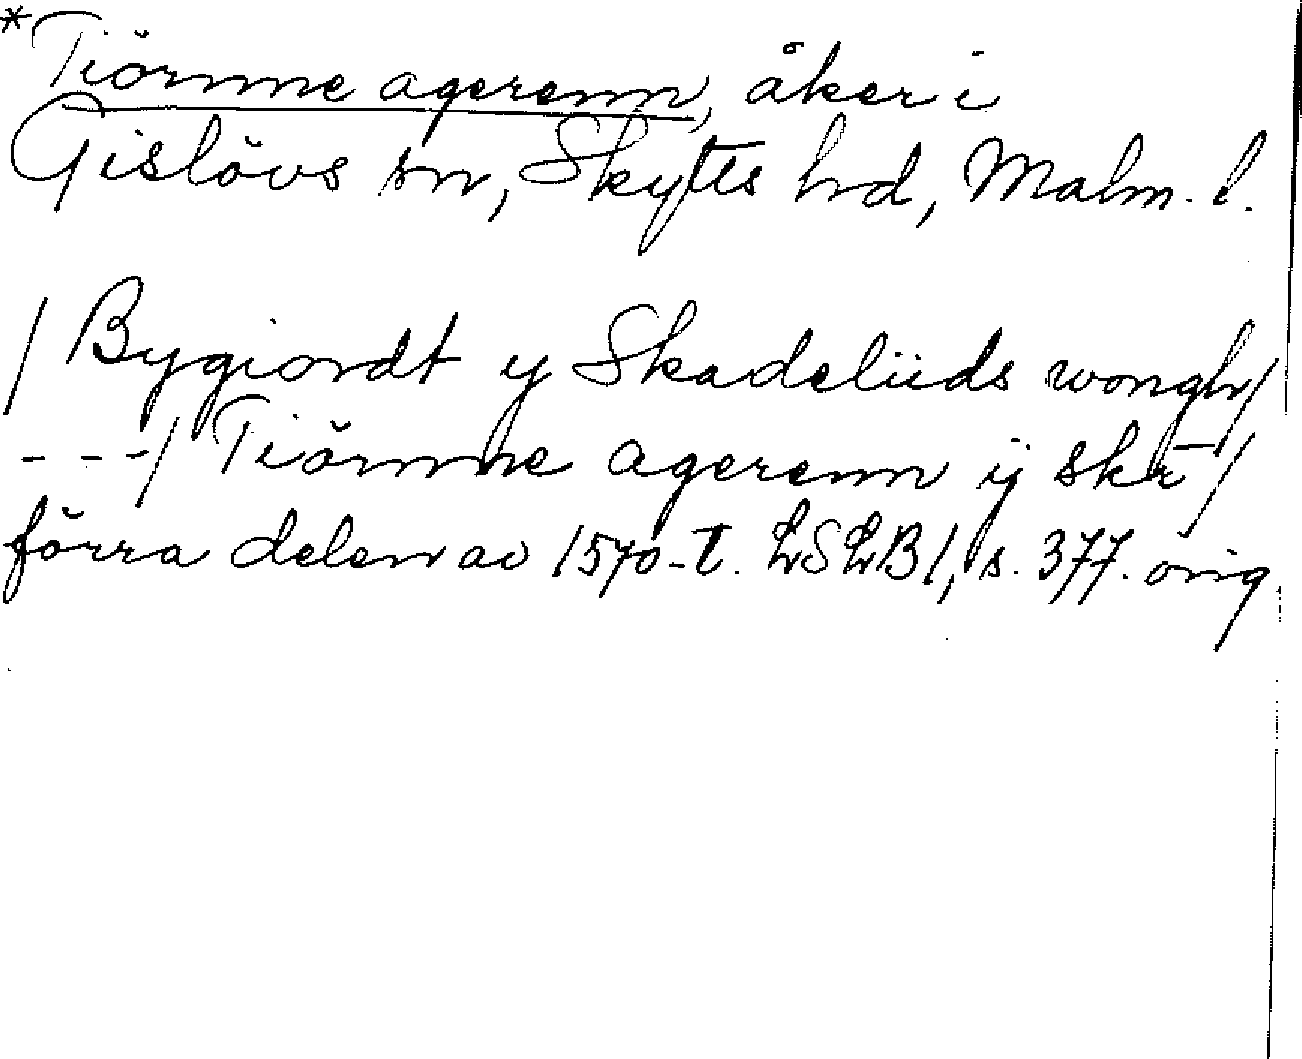 *Tiörnne agerenn, åker i
Gislövs sn, Skytts hd, Malm. l.
/ Bygiordt y Skadeliids wongh/
---/ Tiörnne agerenn ij skr̄ /
förra delen av 1570-t. LSLB1, s. 377. orig